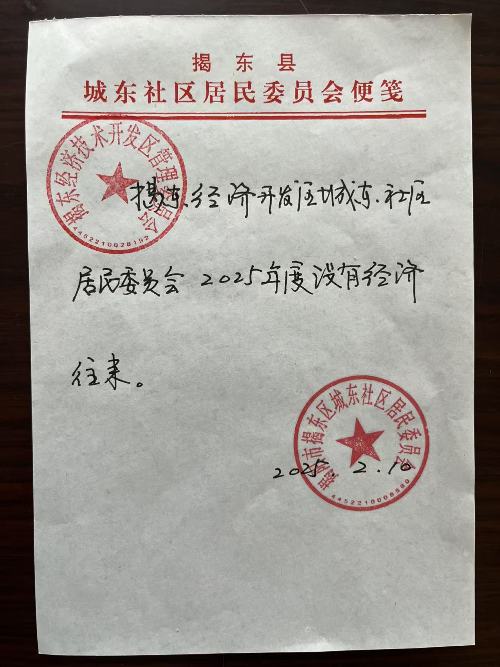 揭东县
城东社区居民委员会便笺
揭东经济技术开发区管理委员会
4452210028152
揭东经济开发区城东社区
居民委员会2025年度没有经济
往来。
揭阳市揭东区城东社区居民委员会
2025.2.10